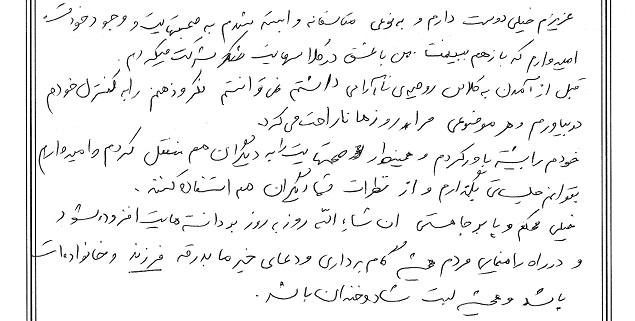 عزیزم خیلی دوست دارم و به نوعی متاسفانه وابسته شدم به صحبتهایت و وجود خودت.
امیدوارم که بازهم ببینمت. من با عشق در کلاسهایت شرکت میکردم.
قبل از آمدن به کلاس روحیه‌ی ناآرامی داشتم نمی‌توانستم فکر و ذهنم را به کنترل خودم
دربیاورم و هر موضوعی مرا روزها ناراحت می‌کرد.
خودم را بیشتر باور کردم و همینطور صحبتهایت را به دیگران هم منتقل کردم و امیدوارم
بتوانم جلساتی بگذارم و از نظرات شما دیگران هم استفاده کنند.
خیلی محکم و پا برجا هستی ان شاء الله روز به روز بر دانسته هایت افزوده شود
و در راه راهنمایی مردم همیشه گام برداری و دعای خیر ما بدرقه فرزند و خانواده‌ات
باشد و همیشه لبت شاد و خندان باشد.